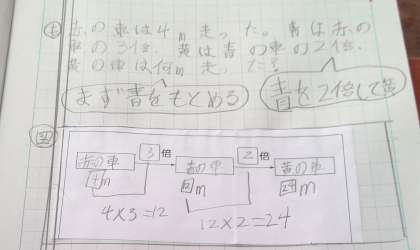 問 赤の車は4m走った。青は赤の
車の3倍、黄は青の車の2倍。
黄の車は何m走った?
まず青をもとめる
青を2倍して黄
図
赤の車 3倍 青の車 2倍 黄の車
4m 12m 24m
4×3=12 12×2=24